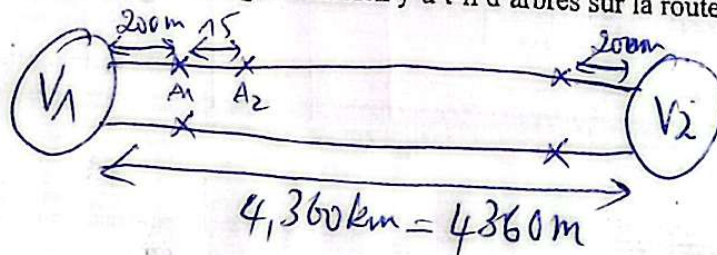 y a t-il d'arbres sur la route
200m 15 200m
V1 A1 A2 V2
4,360km = 4360m